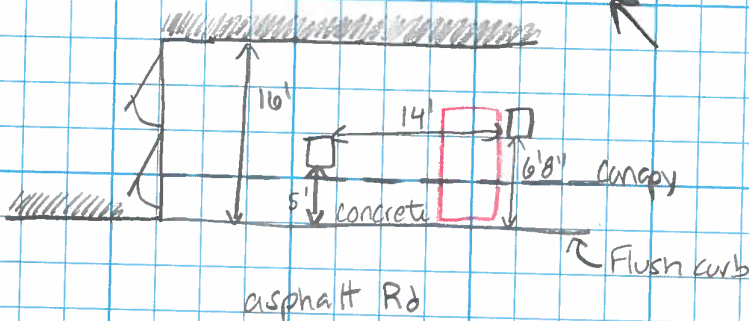 16'
14'
6'8"
Canopy
5'
concrete
Flush curb
asphalt Rd